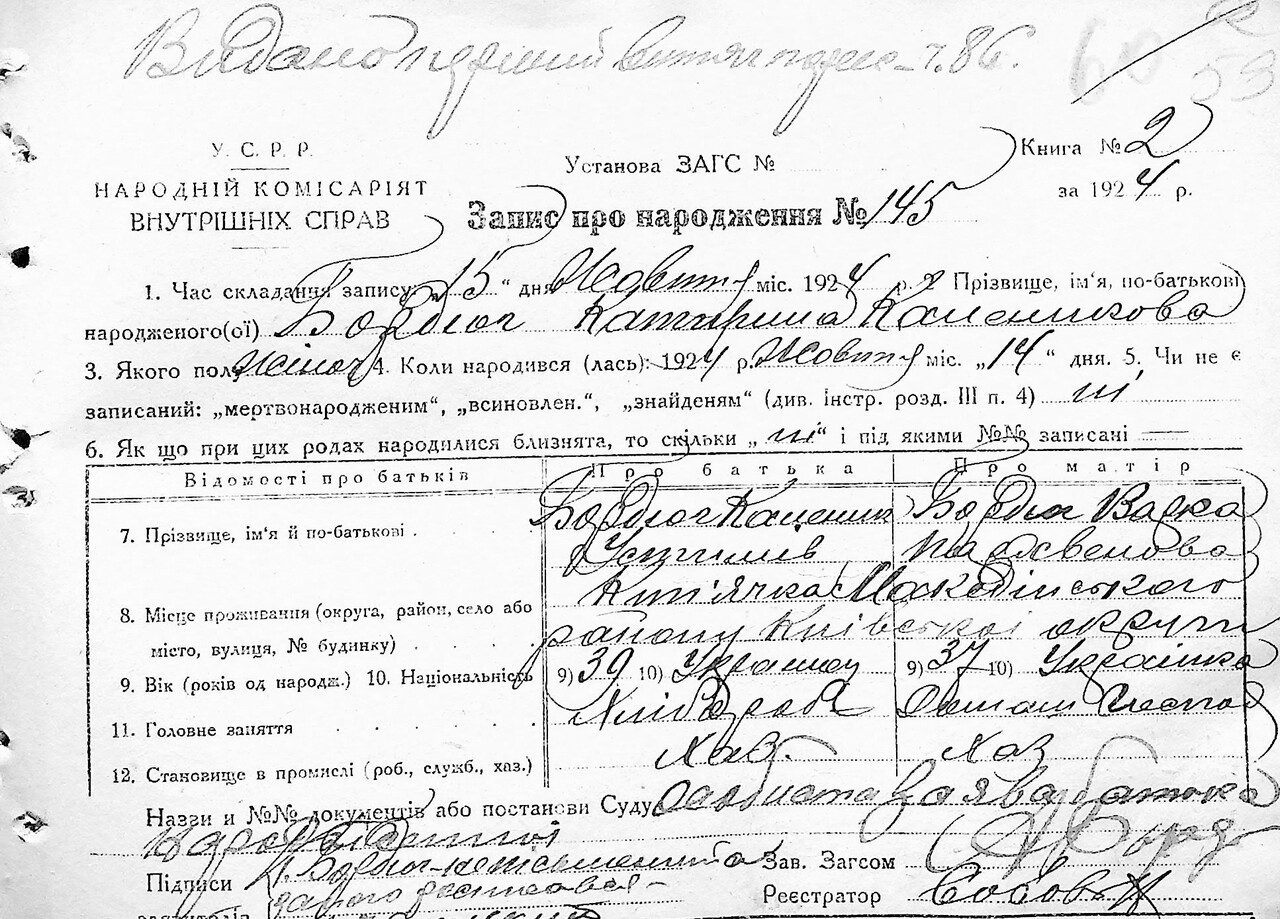 Видано
ч. 86.
53
У. С. Р. Р.
НАРОДНІЙ КОМІСАРІЯТ
ВНУТРІШНІХ СПРАВ
Установа ЗАГС №
Книга № 2
за 1924 р.
Запис про народження № 145
1. Час складання запису: „15“ дня Жовтня міс. 1924 р. 2. Прізвище, ім'я, по-батькові
народженого(ої) Бордюг Катирина Каленикова
3. Якого полу жіноч 4. Коли народився (лась): 1924 р. Жовтня міс. „14“ дня. 5. Чи не є
записаний: „мертвонародженим“, „всиновлен.“, „знайденям“ (див. інстр. розд. III п. 4) ні
6. Як що при цих родах народилися близнята, то скільки „ні“ і під якими №№ записані —
Відомості про батьків Про батька Про матір
7. Прізвище, ім'я й по-батькові Бордюг Каленик Бордюг Варка
Устимів
8. Місце проживання (округа, район, село або місто, вулиця, № будинку)
району Київської округи
9. Вік (років од народж.) 10. Національність 9) 39 10) Українец 9) 37 10) Українка
11. Головне заняття Хлібороб Домаш
12. Становище в промислі (роб., служб., хаз.) Хаз. Хаз
Назви и №№ документів або постанови Суду Особиста Заява батька
Підписи Бордюг
Зав. Загсом
Реєстратор
заявителів